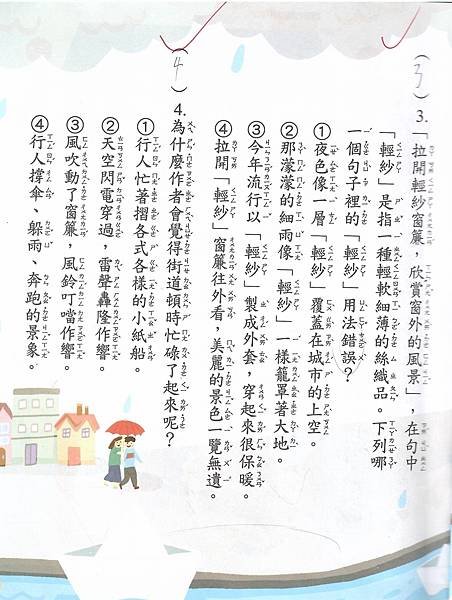 (3) 3.「拉開輕紗窗簾，欣賞窗外的風景」，在句中
「輕紗」是指一種輕軟細薄的絲織品。下列哪
一個句子裡的「輕紗」用法錯誤？
①夜色像一層「輕紗」覆蓋在城市的上空。
②那濛濛的細雨像「輕紗」一樣籠罩著大地。
③今年流行以「輕紗」製成外套，穿起來很保暖。
④拉開「輕紗」窗簾往外看，美麗的景色一覽無遺。
(4) 4.為什麼作者會覺得街道頓時忙碌了起來呢？
①行人忙著摺各式各樣的小紙船。
②天空閃電穿過，雷聲轟隆作響。
③風吹動了窗簾，風鈴叮噹作響。
④行人撐傘、躲雨、奔跑的景象。